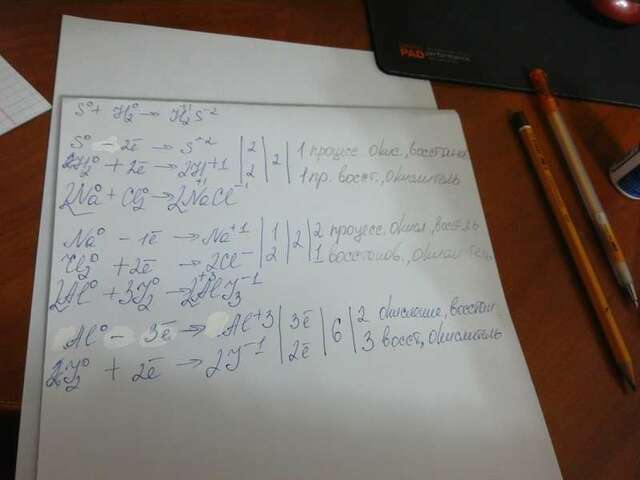 PAD performance
S⁰ + H₂⁰ → H₂⁺¹S⁻²
S⁰ - 2ē → S⁺² | 2 | 2 | 1 процесс окис., восстано
H₂⁰ + 2ē → 2H⁺¹ | 2 | 1 пр. восст., окислитель
2Na⁰ + Cl₂⁰ → 2Na⁺¹Cl⁻¹
Na⁰ - 1ē → Na⁺¹ | 1 | 2 | 2 процесс. окисл, вост-ль
Cl₂⁰ + 2ē → 2Cl⁻ | 2 | 1 восстанов., окислит-тель
2Al⁰ + 3J₂⁰ → 2Al⁺³J₃⁻¹
Al⁰ - 3ē → Al⁺³ | 3ē | 6 | 2 окисление, восстан
J₂⁰ + 2ē → 2J⁻¹ | 2ē | 3 восст, окислитель